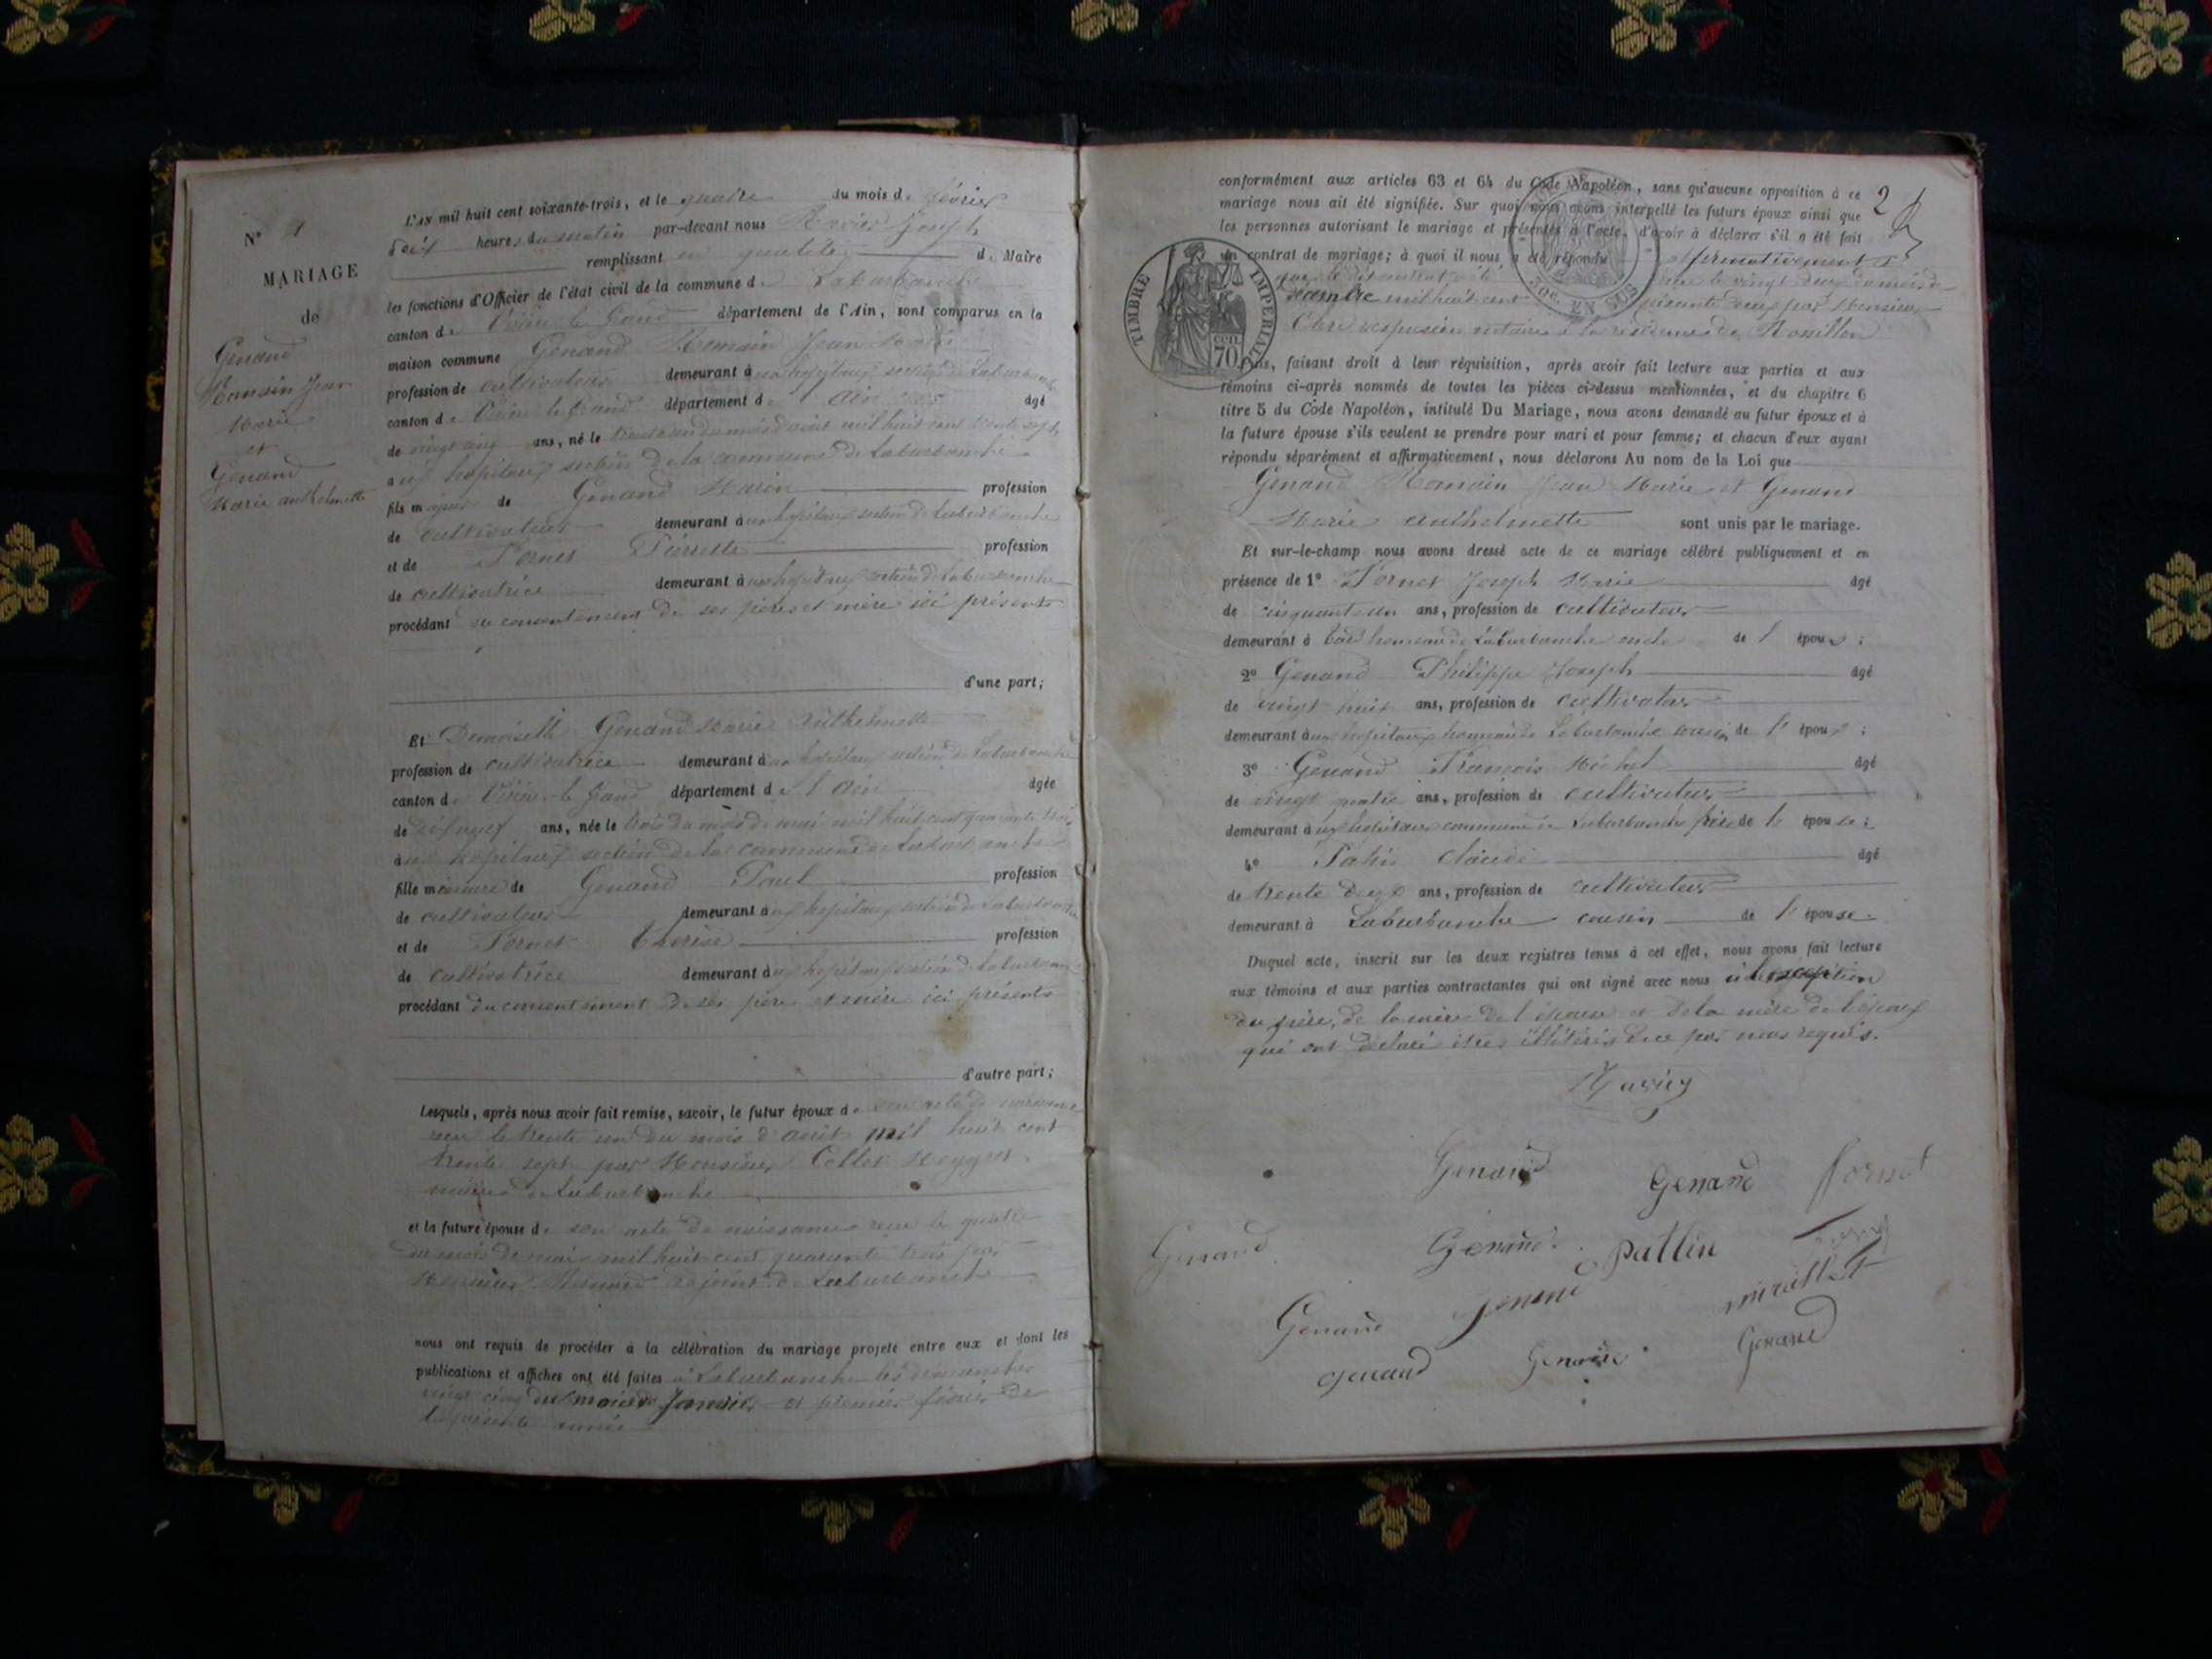 N° 1
MARIAGE
de
Genand
Romain Jean
Marie
et
Genand
Marie anthelmette
L'AN mil huit cent soixante-trois, et le quatre du mois de février
dix heures du matin par-devant nous Joseph
remplissant en qualité de Maire
les fonctions d'Officier de l'état civil de la commune de Laburbanche
canton de Virieu le Grand département de l'Ain, sont comparus en la
maison commune Genand Romain Jean Marie
profession de cultivateur demeurant à aux hopitaux section de Laburbanche
canton de Virieu le Grand département de l'ain âgé
de vingt cinq ans, né le trente un du mois d'aout mil huit cent trente sept
aux hopitaux section de la commune de Laburbanche
fils majeur de Genand Marin profession
de cultivateur demeurant à aux hopitaux section de Laburbanche
et de Fornet Pierrette profession
de cultivatrice demeurant à aux hopitaux section de Laburbanche
procédant du consentement de ses père et mère ici présents
d'une part;
Et Demoiselle Genand Marie Anthelmette
profession de cultivatrice demeurant à aux hopitaux section de Laburbanche
canton de Virieu le Grand département de l'ain âgée
de dix neuf ans, née le trois du mois de mai mil huit cent quarante trois
aux hopitaux section de la commune de Laburbanche
fille mineure de Genand Paul profession
de cultivateur demeurant à aux hopitaux section de Laburbanche
et de Fornet Thérise profession
de cultivatrice demeurant à aux hopitaux section de Laburbanche
procédant du consentement de ses père et mère ici présents
d'autre part;
Lesquels, après nous avoir fait remise, savoir, le futur époux de son acte de naissance
reçu le trente un du mois d'août mil huit cent
trente sept par Monsieur Collet Meygret
maire de Laburbanche
et la future épouse de son acte de naissance reçu le quatre
du mois de mai mil huit cent quarante trois par
Monsieur adjoint de Laburbanche
nous ont requis de procéder à la célébration du mariage projeté entre eux et dont les
publications et affiches ont été faites à Laburbanche les dimanches
vingt cinq du mois de Janvier et premier février de
la présente année
2
conformément aux articles 63 et 64 du Code Napoléon, sans qu'aucune opposition à ce
mariage nous ait été signifiée. Sur quoi nous avons interpellé les futurs époux ainsi que
les personnes autorisant le mariage et présentes à l'acte, d'avoir à déclarer s'il a été fait
un contrat de mariage; à quoi il nous a été répondu affirmativement et
que le dit contrat a été le vingt deux du mois de
mil huit cent soixante deux par Monsieur
notaire à la résidence de Rossillon
TIMBRE IMPERIAL
CEN. 70
50c. EN SUS
Puis, faisant droit à leur réquisition, après avoir fait lecture aux parties et aux
témoins ci-après nommés de toutes les pièces ci-dessus mentionnées, et du chapitre 6
titre 5 du Code Napoléon, intitulé Du Mariage, nous avons demandé au futur époux et à
la future épouse s'ils veulent se prendre pour mari et pour femme; et chacun d'eux ayant
répondu séparément et affirmativement, nous déclarons Au nom de la Loi que
Genand Romain Jean Marie et Genand
Marie anthelmette sont unis par le mariage.
Et sur-le-champ nous avons dressé acte de ce mariage célébré publiquement et en
présence de 1° Fornet Joseph Marie âgé
de cinquante un ans, profession de cultivateur
demeurant à hameau de Laburbanche oncle de l'époux;
2° Genand Philippe Joseph âgé
de vingt huit ans, profession de cultivateur
demeurant à aux hopitaux hameau de Laburbanche cousin de l'époux;
3° Genand François Michel âgé
de vingt quatre ans, profession de cultivateur
demeurant à aux hopitaux commune de Laburbanche frère de l'épouse;
4° âgé
de trente deux ans, profession de cultivateur
demeurant à Laburbanche cousin de l'épouse.
Duquel acte, inscrit sur les deux registres tenus à cet effet, nous avons fait lecture
aux témoins et aux parties contractantes qui ont signé avec nous à l'exception
du père, de la mère de l'épouse et de la mère de l'époux
qui ont déclaré être illitérés de ce par nous requis.
Genand
Genand fornet
Genand
Genand pattin
Genand
Genand
miraillet
Genand
Genand
Genand